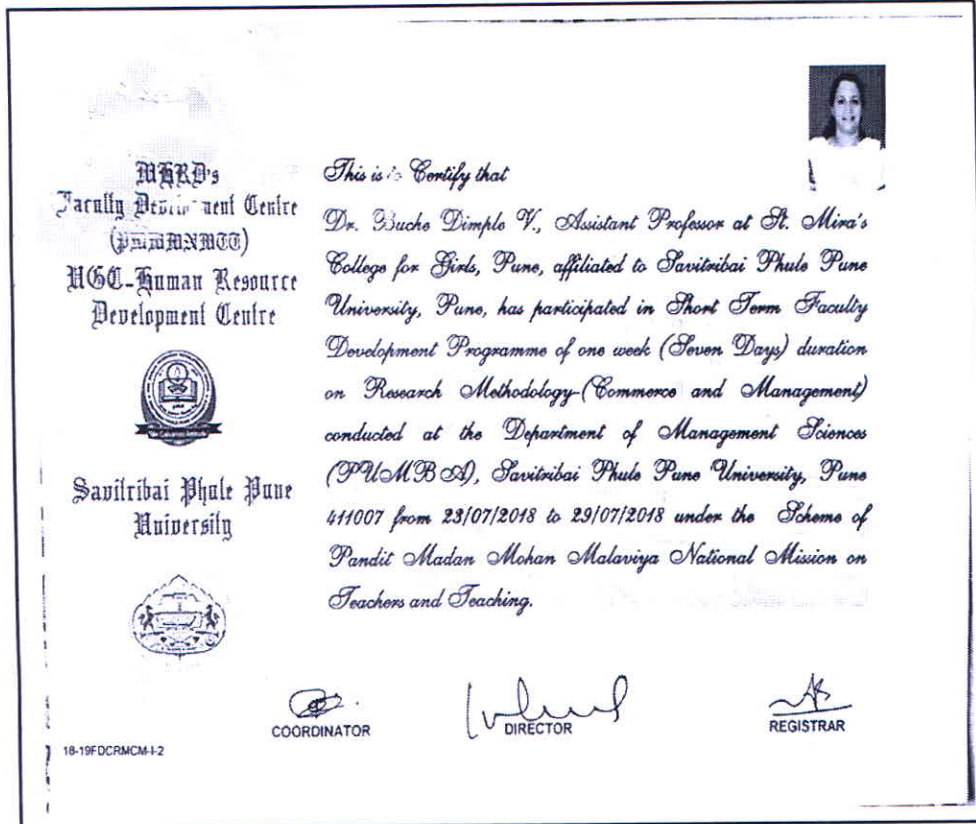 MHRD's
Faculty Development Centre
(PMMMNMTT)
UGC-Human Resource
Development Centre
Savitribai Phule Pune
University
This is to Certify that
Dr. Buche Dimple V., Assistant Professor at St. Mira's
College for Girls, Pune, affiliated to Savitribai Phule Pune
University, Pune, has participated in Short Term Faculty
Development Programme of one week (Seven Days) duration
on Research Methodology-(Commerce and Management)
conducted at the Department of Management Sciences
(PUMBA), Savitribai Phule Pune University, Pune
411007 from 23/07/2018 to 29/07/2018 under the Scheme of
Pandit Madan Mohan Malaviya National Mission on
Teachers and Teaching.
COORDINATOR
DIRECTOR
REGISTRAR
18-19FDCRMCM-I-2